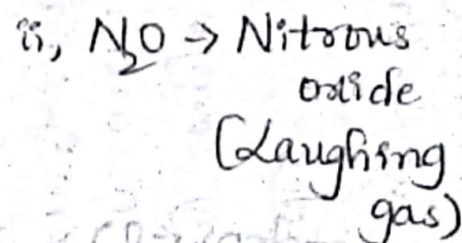 ii, N₂O → Nitrous
oxide
(Laughing
gas)